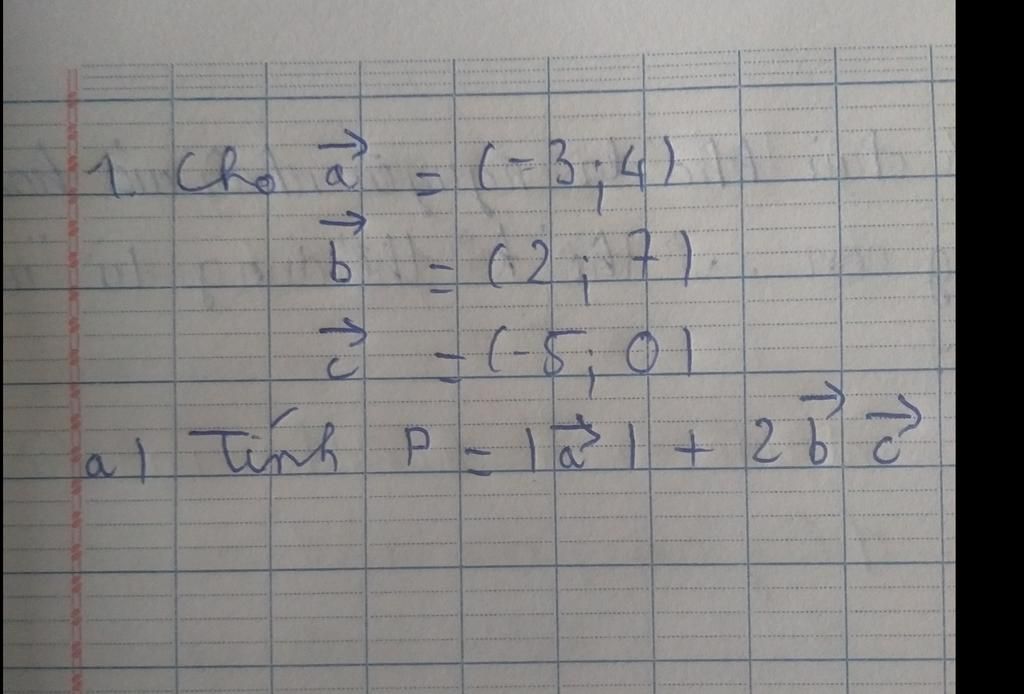 1 Cho a⃗ = (-3; 4)
b⃗ = (2; 7)
c⃗ = (-5; 0)
a) Tính P = |a⃗| + 2 b⃗ c⃗